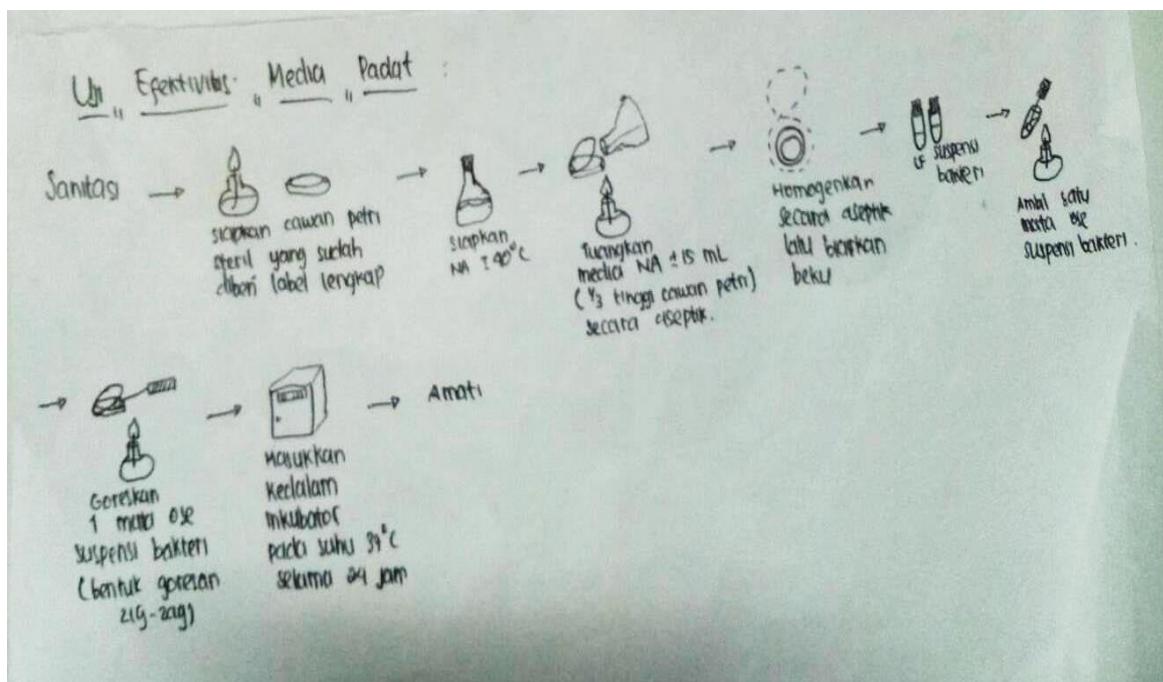 Uji Efektivitas Media Padat :
Sanitasi
siapkan cawan petri
steril yang sudah
diberi label lengkap
siapkan
NA ± 40°C
Tuangkan
media NA ± 15 mL
(1/3 tinggi cawan petri)
secara aseptik.
Homogenkan
secara aseptik
lalu biarkan
beku
suspensi
bakteri
Ambil satu
mata ose
suspensi bakteri.
Goreskan
1 mata ose
suspensi bakteri
(bentuk goresan
zig-zag)
Masukkan
kedalam
inkubator
pada suhu 37°C
selama 24 jam
Amati